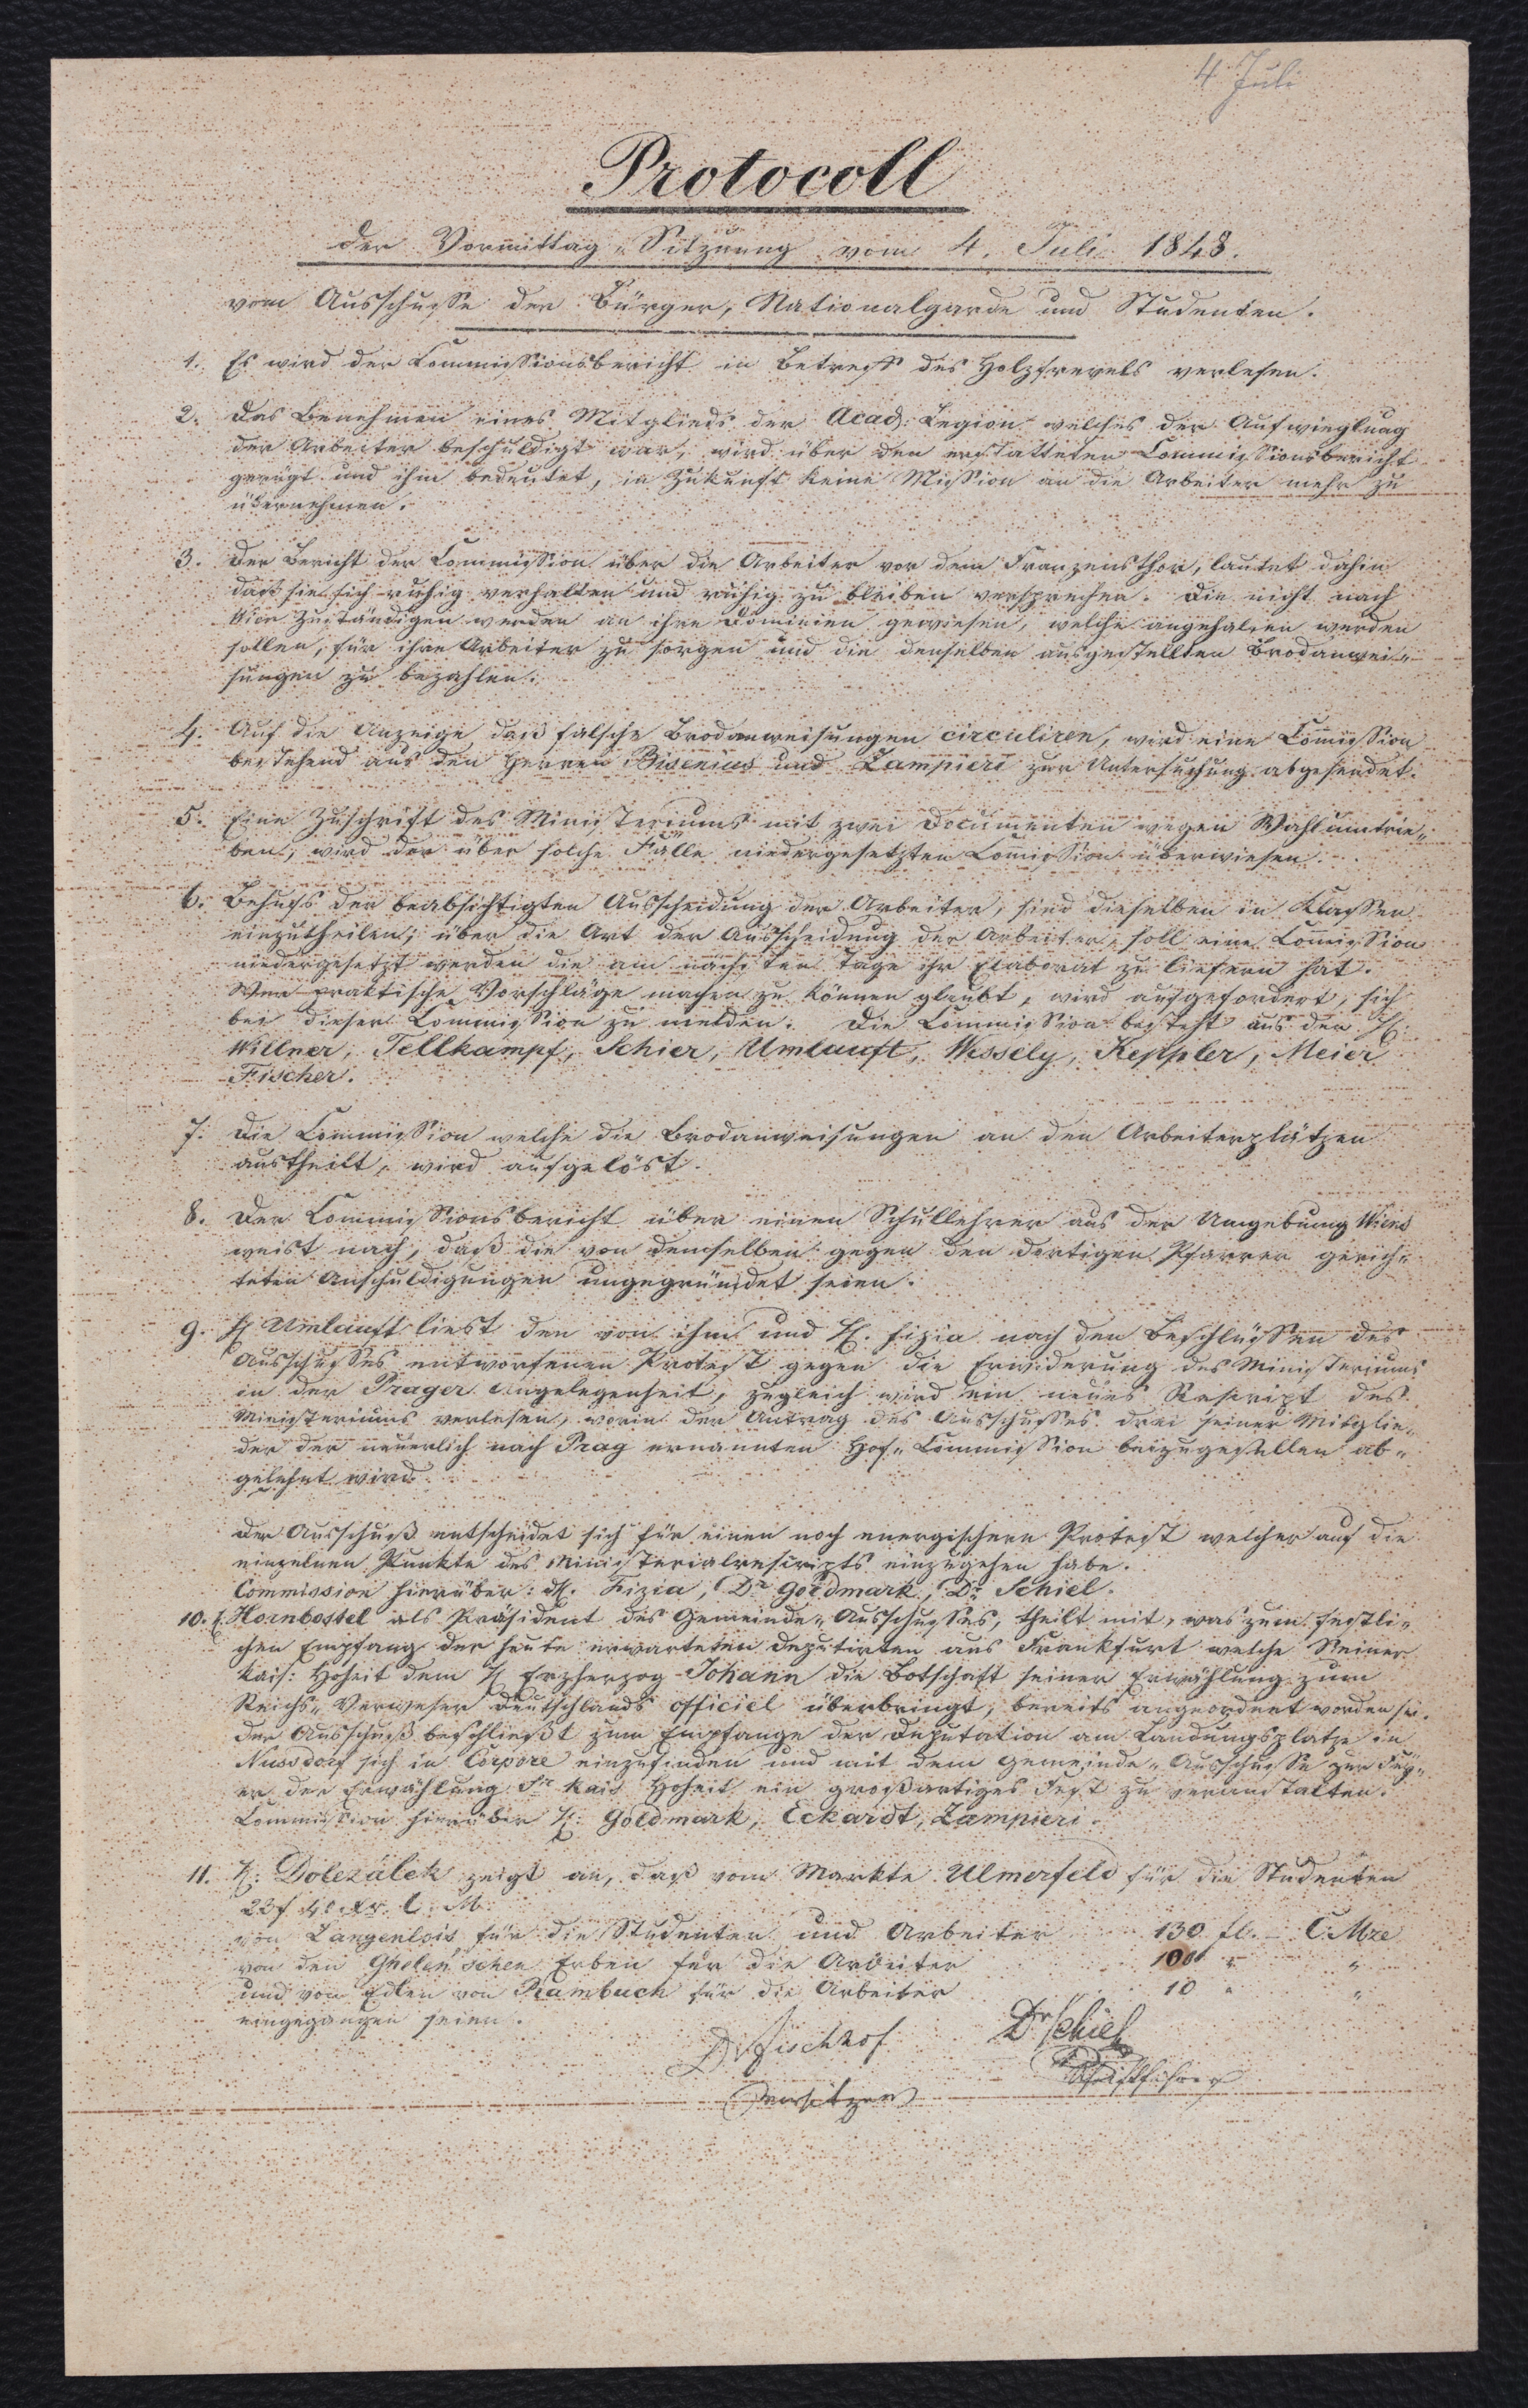 4 Juli
Protocoll
der Vormittag-Sitzung vom 4. Juli 1848.
vom Ausschuße der Bürger, Nationalgarde und Studenten.
1. Es wird der Commißionsbericht in Betreff des Holzfrevels verlesen.
2. Das Benehmen eines Mitglieds der Acad: Legion welches der Aufwieglung
der Arbeiter beschuldigt war, wird über den erstatteten Commißionsbericht
gerügt und ihm bedeutet, in Zukunft keine Mißion an die Arbeiter mehr zu
übernehmen.
3. Der Bericht der Commißion über die Arbeiter vor dem Franzensthor, lautet dahin
daß sie sich ruhig verhalten und ruhig zu bleiben versprechen. Die nicht nach
Wien Zuständigen werden an ihre Dominien gewiesen, welche angehalten werden
sollen, für ihre Arbeiter zu sorgen und die denselben ausgestellten Brodanwei-
sungen zu bezahlen.
4. Auf die Anzeige daß falsche Brodanweisungen circuliren, wird eine Com̅ißion
bestehend aus den Herren Bisenius und Zampieri zur Untersuchung abgesendet.
5. Eine Zuschrift des Ministeriums mit zwei Documenten wegen Wahlumtrie-
ben, wird der über solche Fälle niedergesetzten Com̅ißion überwiesen.
6. Behufs der beabsichtigten Ausscheidung der Arbeiter, sind dieselben in Klaßen
einzutheilen; über die Art der Ausscheidung der Arbeiter, soll eine Com̅ißion
niedergesetzt werden die am nächsten Tage ihr Elaborat zu liefern hat.
Wer praktische Vorschläge machen zu können glaubt, wird aufgefordert, sich
bei dieser Commißion zu melden. Die Commißion besteht aus den H:
Willner, Tellkampf, Schier, Umlauft, Wessely, Keppler, Meier
Fischer.
7. Die Commißion welche die Brodanweisungen an den Arbeiterplätzen
austheilt, wird aufgelöst.
8. Der Commißionsbericht über einen Schullehrer aus der Umgebung Wiens
weist nach, daß die von demselben gegen den dortigen Pfarrer gerich-
teten Anschuldigungen ungegründet seien.
9. H Umlauft liest den von ihm und H. Fizia nach den Beschlüßen des
Ausschußes entworfenen Protest gegen die Erwiderung des Ministeriums
in der Prager Angelegenheit, zugleich wird ein neues Rescript des
Ministeriums verlesen, worin der Antrag des Ausschußes drei seiner Mitglie-
der der neuerlich nach Prag ernannten Hof-Commißion beizugesellen ab-
gelehnt wird.
Der Ausschuß entscheidet sich für einen noch energischern Protest welcher auf die
einzelnen Punkte des Ministerialrescripts einzugehen habe.
Commission hierüber: H. Fizia, Dr Goldmark, Dr Schiel.
10. H. Hornbostel als Präsident des Gemeinde-Ausschußes, theilt mit, was zum festli-
chen Empfang der heute erwarteten Deputirten aus Frankfurt welche Seiner
kais: Hoheit dem H Erzherzog Johann die Botschaft seiner Erwählung zum
Reichs-Verweser Deutschlands officiel überbringt, bereits angeordnet worden sei.
Der Ausschuß beschließt zum Empfange der Deputation am Landungsplatze in
Nussdorf sich in Corpore einzufinden und mit dem Gemeinde-Ausschuße zur Fey-
er der Erwählung Sr kais Hoheit ein großartiges Fest zu veranstalten.
Commißion hierüber H: Goldmark, Eckardt, Zampieri.
11. H: Dolezálek zeigt an, daß vom Markte Ulmerfeld für die Studenten
22 f 40 Kr. C. M.
von Langenlois für die Studenten und Arbeiter 130 fl. – C. Mze
von den Ghelen'schen Erben für die Arbeiter 100 " "
und vom Edlen von Rambuch für die Arbeiter 10 " "
eingegangen seien.
Dr Fischhof Dr Schiel
Vorsitzer Schriftführer